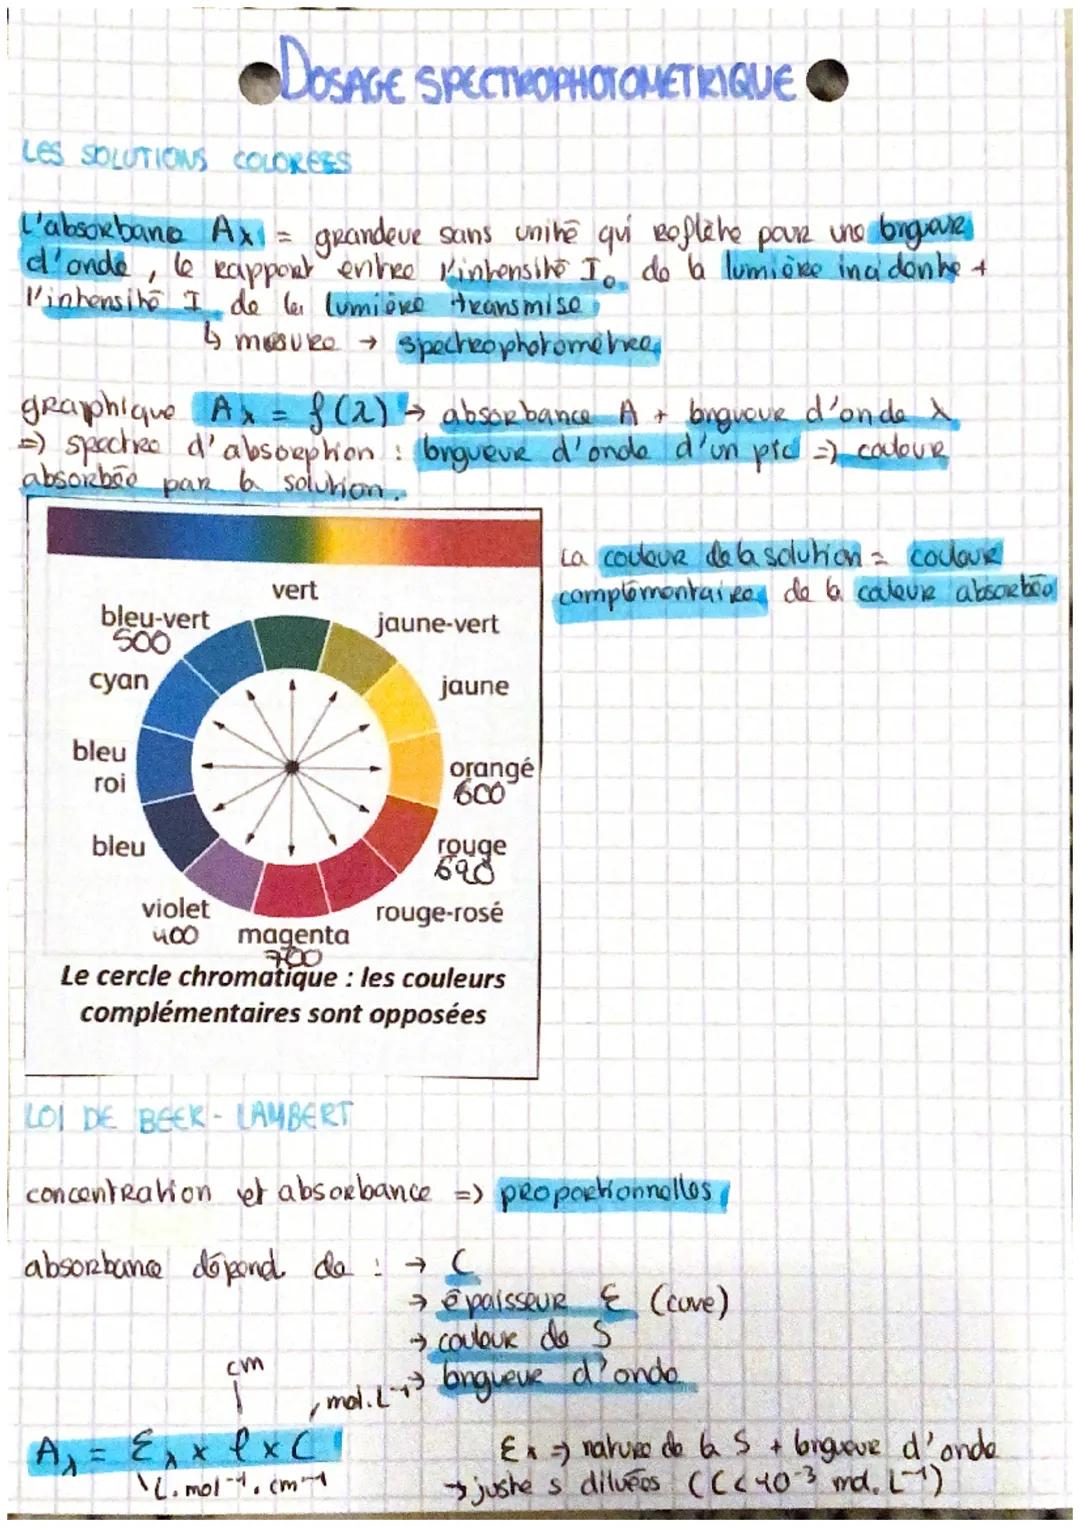 DOSAGE SPECTROPHOTOMETRIQUE
LES SOLUTIONS COLOREES
L'absorbance Aλ = grandeur sans unité qui reflète pour une longueur
d'onde, le rapport entre l'intensité I₀ de la lumière incidente +
l'intensité I de la lumière transmise
↳ mesure → spectrophotomètre
graphique Aλ = f(λ) → absorbance A + longueur d'onde λ
=> spectre d'absorption : longueur d'onde d'un pic => couleur
absorbée par la solution.
La couleur de la solution = couleur
complémentaire de la couleur absorbée
vert
bleu-vert
500
jaune-vert
cyan
jaune
bleu
roi
orangé
600
bleu
rouge
690
violet
400
rouge-rosé
magenta
700
Le cercle chromatique : les couleurs
complémentaires sont opposées
LOI DE BEER-LAMBERT
concentration et absorbance => proportionnelles
absorbance dépend de : → C
→ épaisseur ℇ (cuve)
→ couleur de S
→ longueur d'onde
cm
, mol.L⁻¹
Aλ = ℇλ x ℓ x C
L.mol⁻¹.cm⁻¹
ℇλ => nature de la S + longueur d'onde
→ juste s diluées (C<10⁻³ mol.L⁻¹)